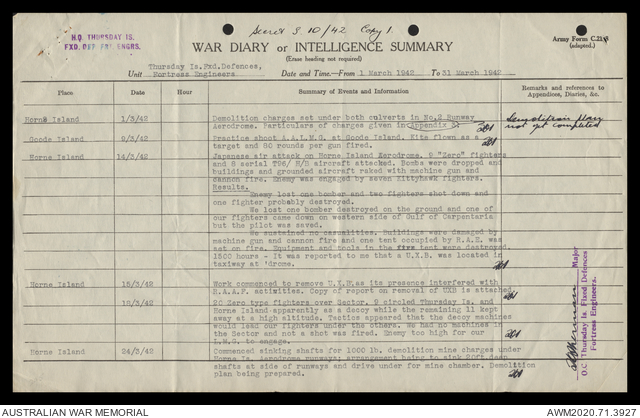 Secret S 10/42 Copy 1.
H.Q. THURSDAY IS.
FXD. DEF FOR. ENGRS.
WAR DIARY or INTELLIGENCE SUMMARY
(Erase heading not required)
Army Form C.2118
(adapted.)
Thursday Is.Fxd.Defences,
Unit Fortress Engineers Date and Time—From 1 March 1942 To 31 March 1942
Place Date Hour Summary of Events and Information Remarks and references to
Appendices, Diaries, &c.
Horne Island 1/3/42 Demolition charges set under both culverts in No.2 Runway
Aerodrome. Particulars of charges given in Appendix
Demolition plan
not yet completed
Goode Island 9/3/42 Practice shoot A.A.L.M.G. at Goode Island. Kite flown as a
target and 80 rounds per gun fired.
Horne Island 14/3/42 Japanese air attack on Horne Island Aerodrome. 9 "Zero" fighters
and 8 aerial T96/ H/B aircraft attacked. Bombs were dropped and
buildings and grounded aircraft raked with machine gun and
cannon fire. Enemy was engaged by seven Kittyhawk fighters.
Results.
Enemy lost one bomber and two fighters shot down and
one fighter probably destroyed.
We lost one bomber destroyed on the ground and one of
our fighters came down on western side of Gulf of Carpentaria
but the pilot was saved.
We sustained no casualities. Buildings were damaged by
machine gun and cannon fire and one tent occupied by R.A.E. was
set on fire. Equipment and tools in the tent were destroyed.
1500 hours - It was reported to me that a U.X.B. was located in
taxiway at 'drome.
Horne Island 15/3/42 Work commenced to remove U.X.B. as its presence interfered with
R.A.A.F. activities. Copy of report on removal of UXB is attached.
18/3/42 20 Zero type fighters over Sector. 9 circled Thursday Is. and
Horne Island apparently as a decoy while the remaining 11 kept
away at a high altitude. Tactics appeared that the decoy machines
would lead our fighters under the others. We had no machines in
the Sector and not a shot was fired. Enemy too high for our
L.M.G. to engage.
Horne Island 24/3/42 Commenced sinking shafts for 1000 lb. demolition mine charges under
Horne Is. Aerodrome runways; arrangement being to sink 20ft.deep
shafts at side of runways and drive under for mine chamber. Demolition
plan being prepared.
Major
O.C Thursday Is. Fixed Defences
Fortress Engineers.
AUSTRALIAN WAR MEMORIAL
AWM2020.71.3927